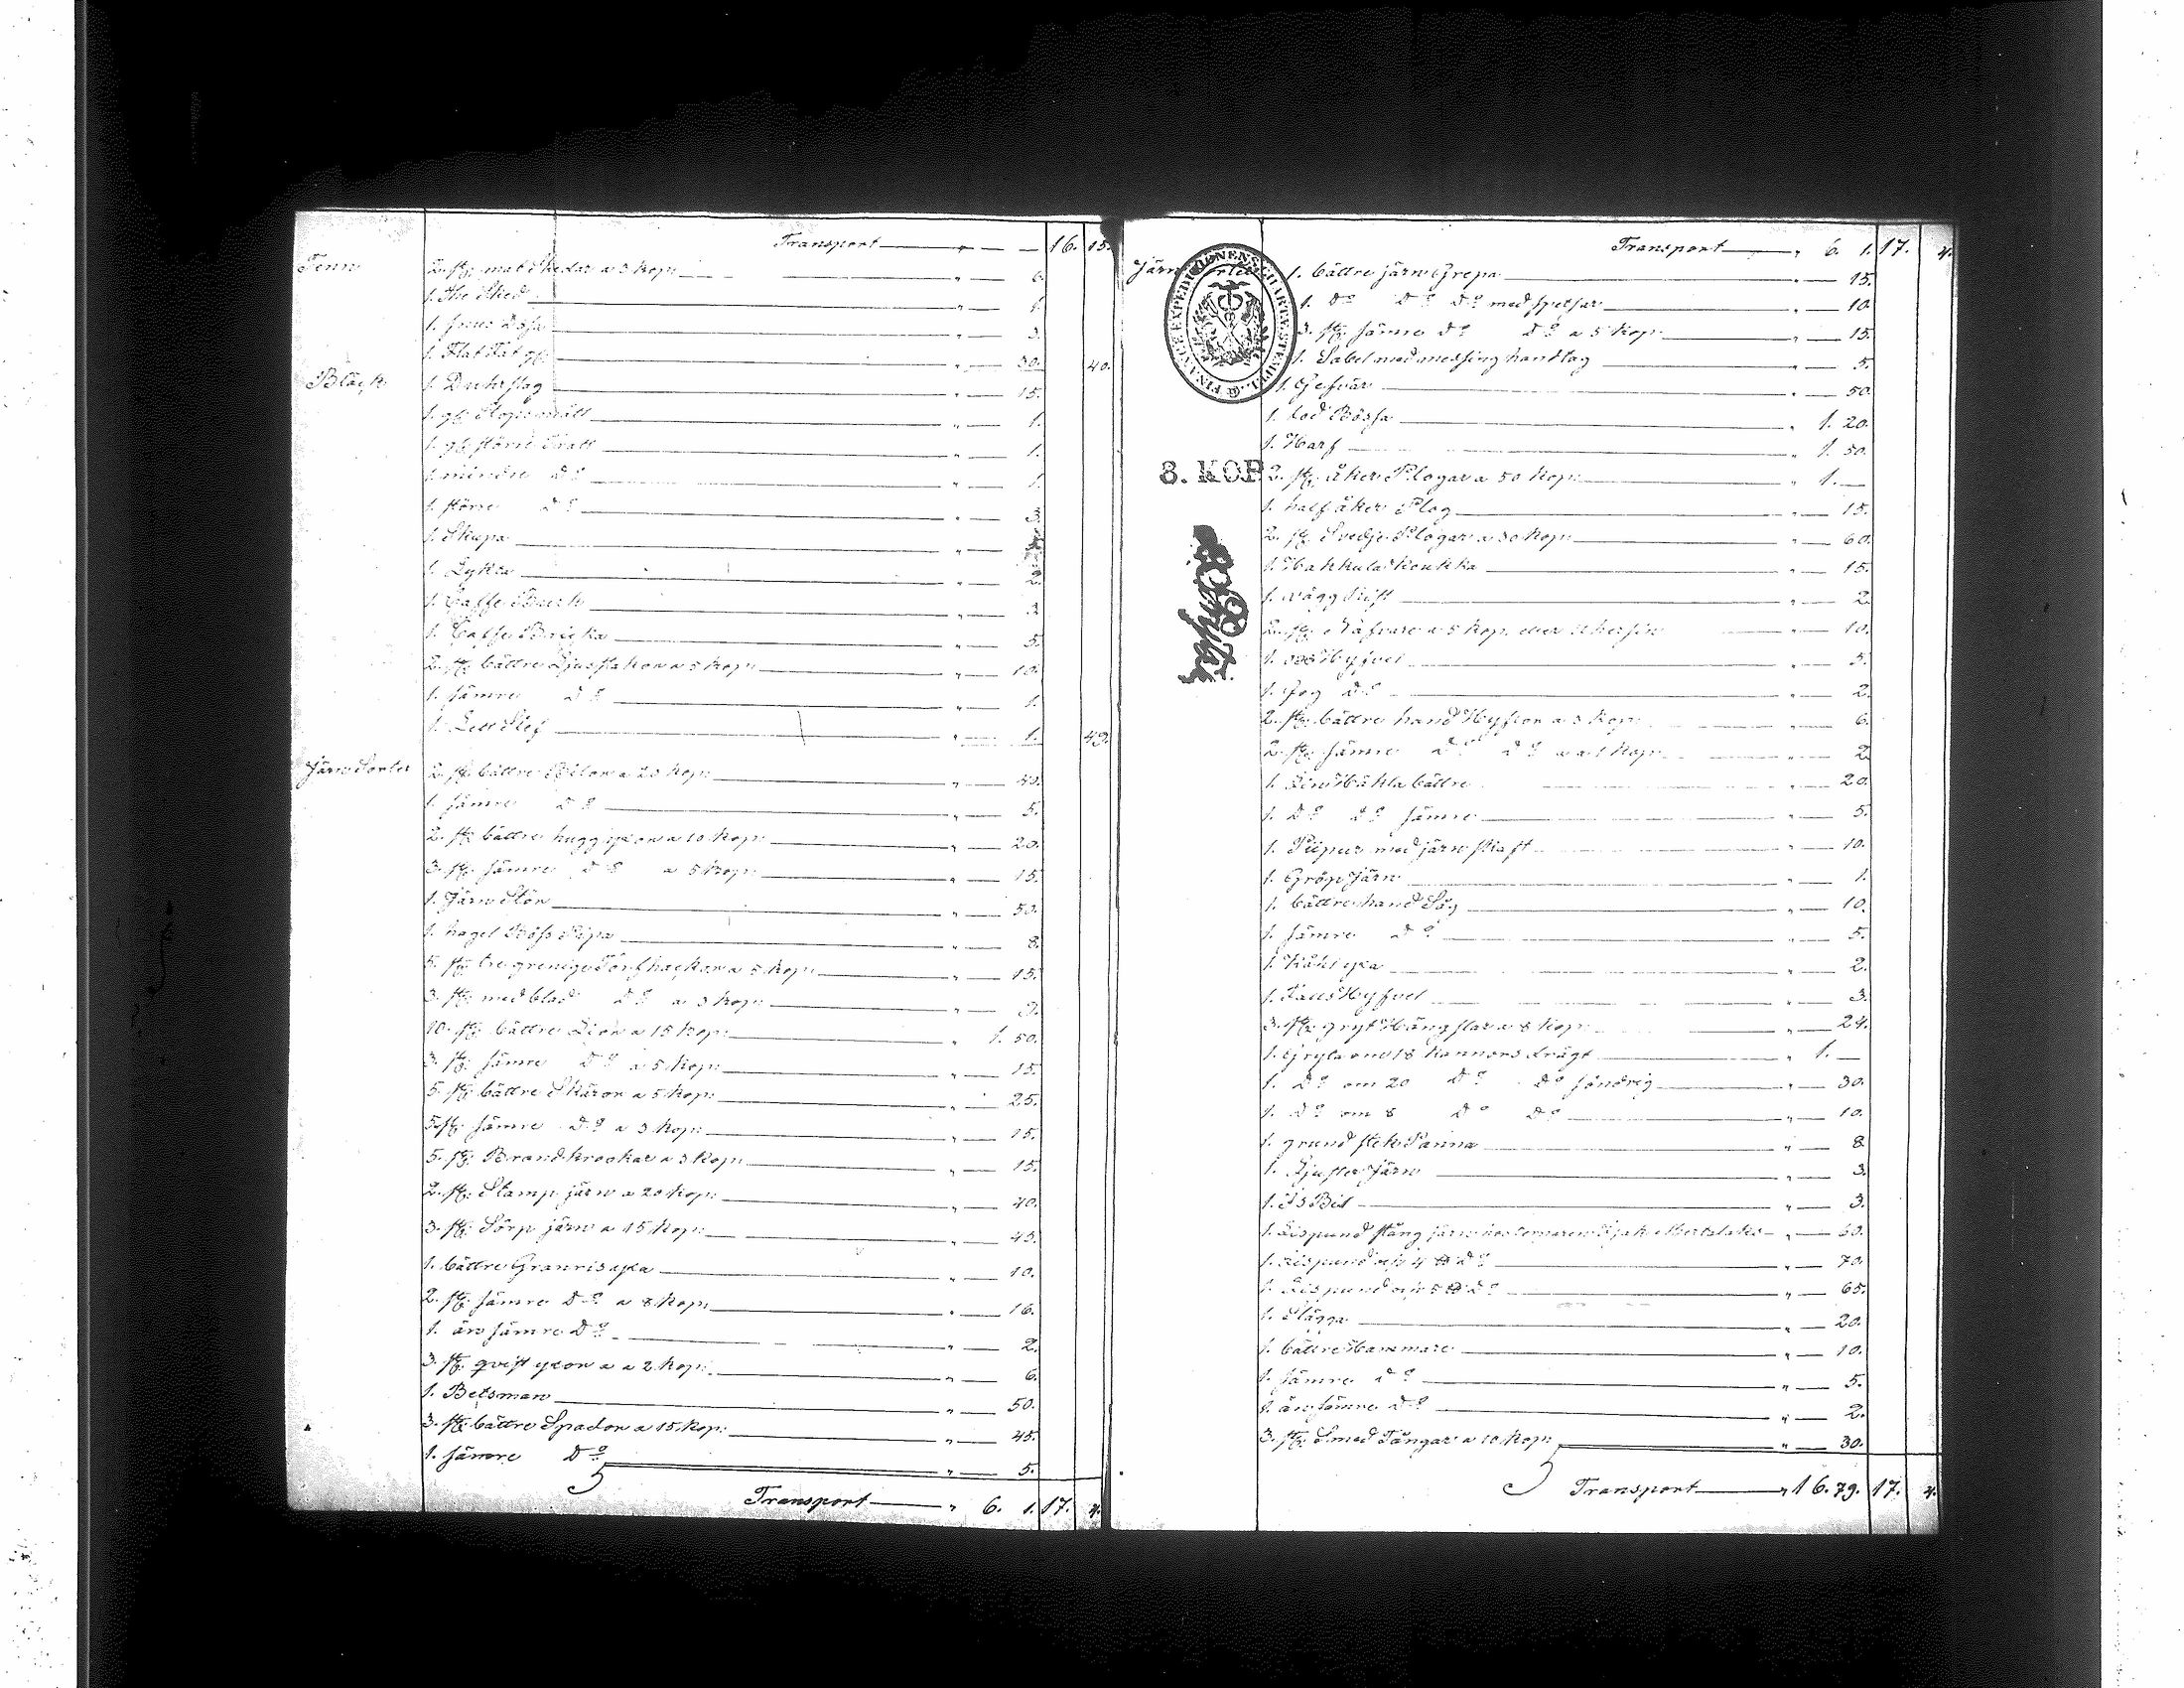 Transport — „ — — 16. 15.
Tenn 2. st: mat Skedar a 3 kop: „ — 6.
1. The Sked „ — 1.
1. Snus Dosa „ — 3.
1. Flat Fat gl: „ — 30. 40.
Bläck 1. Durkslag „ — 15.
1. gl: Stopsmått „ — 1.
1. gl: större Tratt „ — 1.
1. mindre Do „ — 1.
1. större Do „ — 3.
1. Skopa „ —
1. Lykta „ — 2.
1. Caffe Bruk „ —
1. Caffe Bricka „ — 5.
2. st: bättre Ljusstakar a 5 kop: „ — 10.
1. sämre Do „ — 1.
1. Slef „ — 1. 49.
Järn Sorter 2. st: bättre Bilor a 20 kop: „ — 40.
1. sämre Do „ — 5.
2. st: bättre hugg yxor a 10 kop: „ — 20.
3. st: sämre Do a 5 kop: „ — 15.
1. Järn Stör „ — 50.
1. hagel Böss Pipa „ — 8.
5. st: tre greniga Torfhackor a 3 kop: „ — 15.
3. st: med blad Do a 3 kop: „ — 9.
10. st: bättre Liar a 15 kop: „ 1. 50.
3. st: sämre Do a 5 kop: „ — 15.
5. st: bättre Skäror a 5 kop: „ — 25.
5. st: sämre Do a 3 kop: „ — 15.
5. st: Brandkrokar a 3 kop: „ — 15.
2. st: Stamp järn a 20 kop: „ — 40.
3. st: Sörp järn a 15 kop: „ — 45.
1. bättre Granris yxa „ — 10.
2. st: sämre Do a 8 kop: „ — 16.
1. än sämre Do „ — 2.
3. st: qvist yxor a a 2 kop: „ — 6.
1. Betsman „ — 50.
3. st: bättre Spador a 15 kop: „ — 45.
1. sämre Do „ — 5.
Transport — „ 6. 1. 17. 4.
Transport — „ 6. 1. 17. 4.
Järn Sorter 1. bättre järn Grepa „ — 15.
1. Do Do Do med spetsar „ — 10.
3. st: sämre Do Do a 5 kop: „ — 15.
1. Sabel med messing handtag „ — 5.
1. Gefvär „ — 50.
1. lod Bössa „ 1. 20.
1. Harf „ 1. 50.
2. st: åker Plogar a 50 kop: „ 1. —
1. half åker Plog „ — 15.
2. st: Svedje Plogar a 30 kop: „ — 60.
1. Hahkula Koukka „ — 15.
1. vägg „ — 2.
2. st: Nafvare a 5 kop: „ — 10.
1. Hyfvel „ — 5.
1. Fog Do „ — 2.
2. st: bättre hand Hyflar a 3 kop: „ — 6.
2. st: sämre Do Do a a 1 kop: „ — 2.
1. Lin Häkla bättre „ — 20.
1. Do Do sämre „ — 5.
1. Pipur med järn skaft „ — 10.
1. Gröp Järn „ — 1.
1. bättre hand Såg „ — 10.
1. sämre Do „ — 5.
1. Kål yxa „ — 2.
1. Fals Hyfvel „ — 3.
3. st: gryt Hängslar a 8 kop: „ — 24.
1. Gryta om 18 kannors drägt „ 1. —
1. Do om 20 Do Do söndrig „ — 30.
1. Do om 8 Do Do „ — 10.
1. grund stek Panna „ — 8
1. Ljuster Järn „ — 3.
1. Is Bil „ — 3.
1. Lispund stång järn „ — 60.
1. Lispund 4 ℔ Do „ — 70.
1. Lispund 5 ℔ Do „ — 65.
1. Slägga „ — 20.
1. bättre Hammare „ — 10.
1. sämre Do „ — 5.
1. än sämre Do „ — 2.
3. st: Smed Tänger a 10 kop: „ — 30.
Transport — „ 16. 79. 17. 4.
FINANCE EXPEDITIONENS CHARTÆ STEMPEL
8. KOP